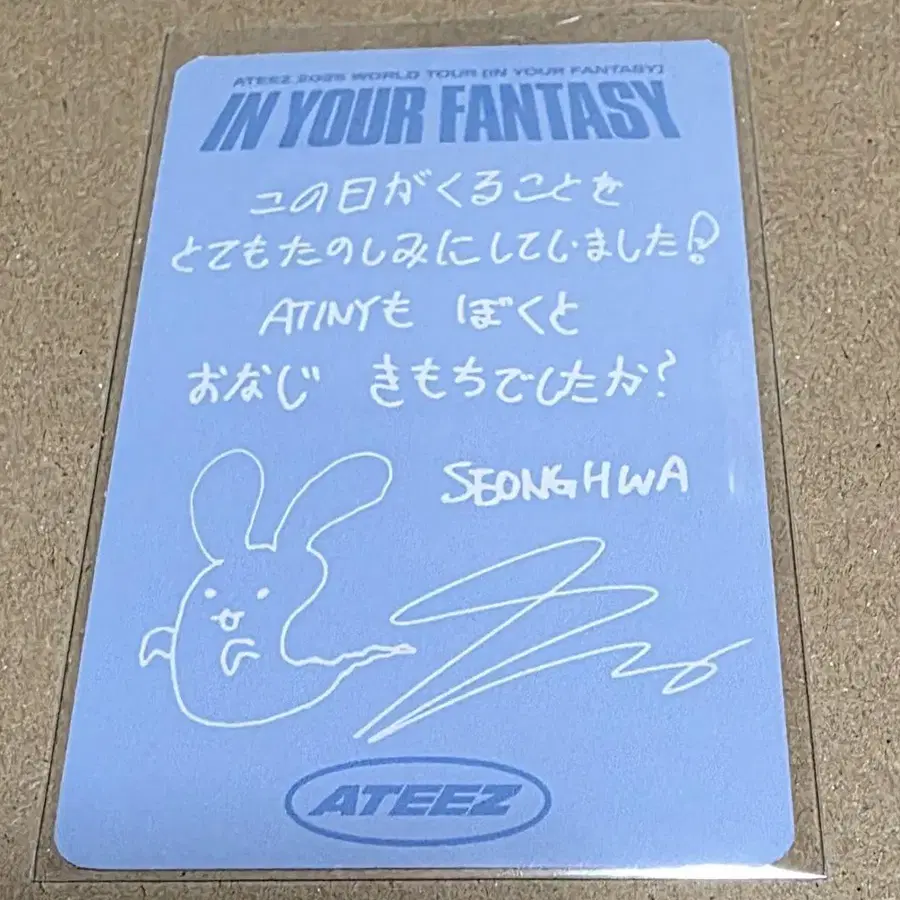 ATEEZ 2025 WORLD TOUR [IN YOUR FANTASY]
IN YOUR FANTASY
この日がくることを
とてもたのしみにしていました!?
ATINYも ぼくと
おなじ きもちでしたか?
SEONGHWA
ATEEZ